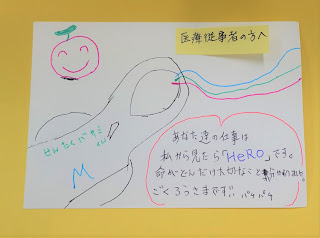 医療従事者の方へ
せんたくバサミ
くん
M
あなた達の仕事は
私から見たら「HeRO」です。
命がどんだけ大切なこと
ごくろうさまです!!
パチパチ